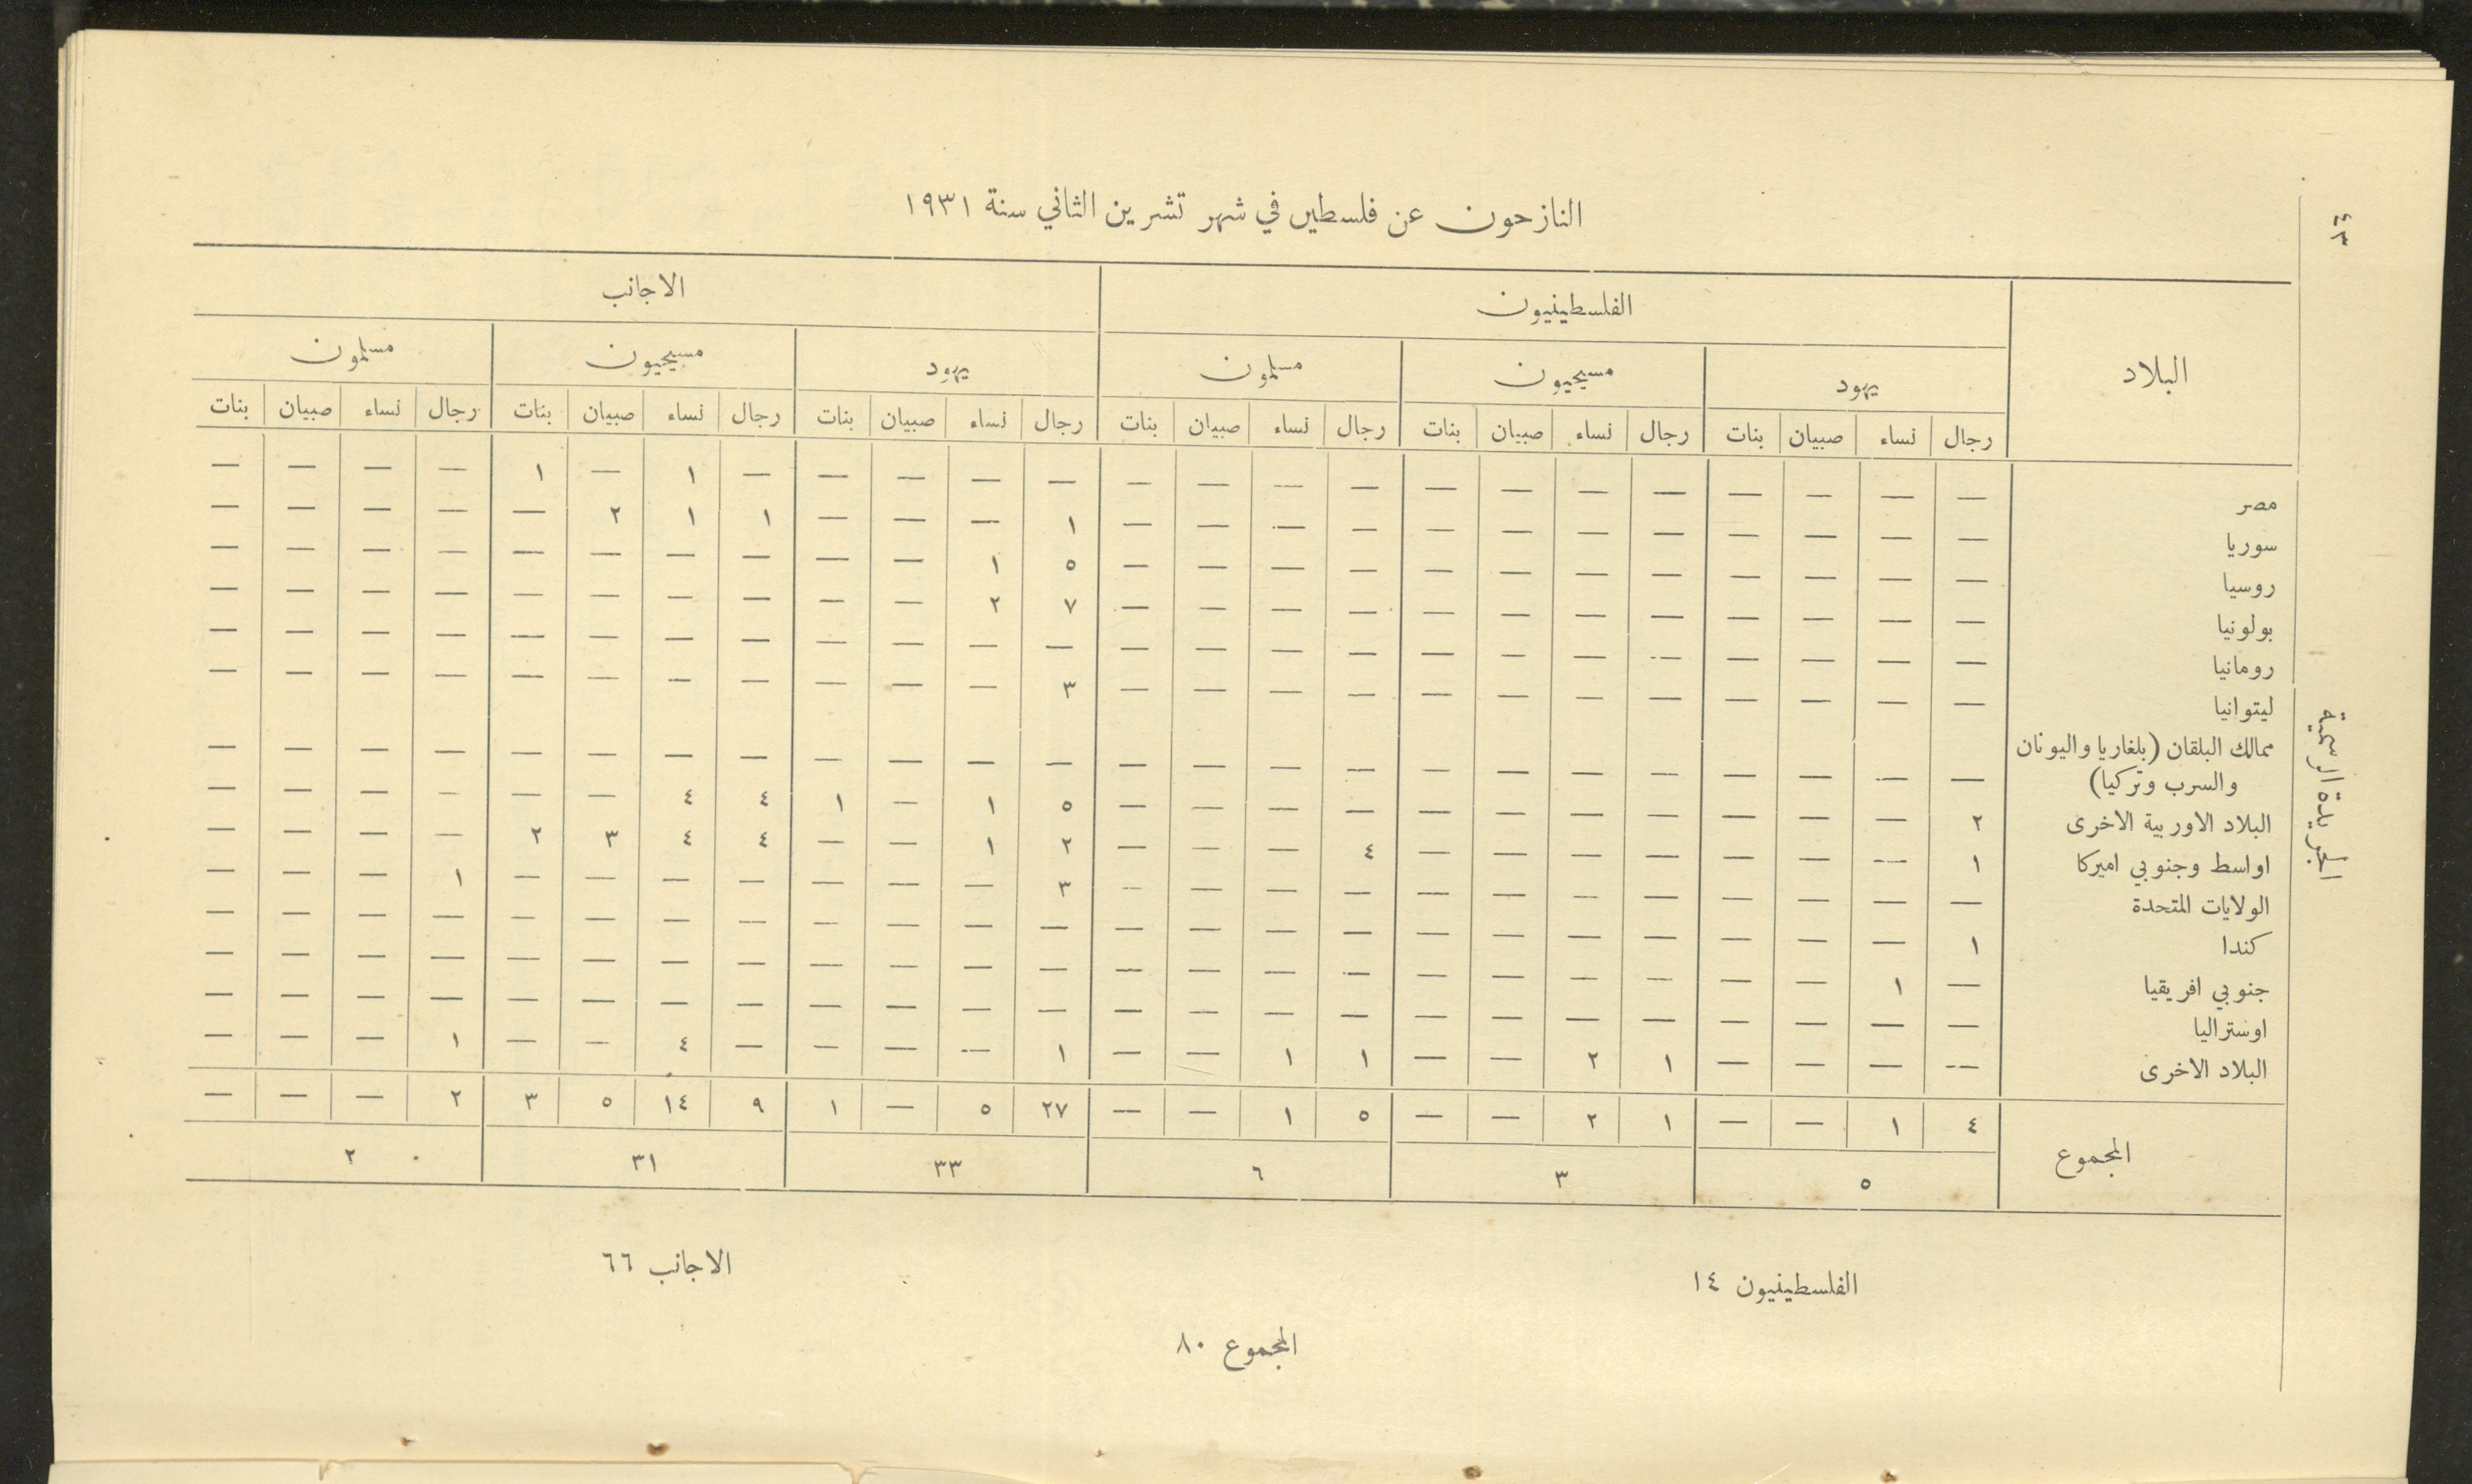 الجريدة الرسمية
النازحون عن فلسطين في شهر تشرين الثاني سنة ١٩٣١
البلاد الفلسطينيون الاجانب
يهود مسيحيون مسلمون يهود مسيحيون مسلمون
رجال نساء صبيان بنات رجال نساء صبيان بنات رجال نساء صبيان بنات رجال نساء صبيان بنات رجال نساء صبيان بنات رجال نساء صبيان بنات
مصر — — — — — — — — — — — — — — — — — ١ — ١ — — — —
سوريا — — — — — — — — — — — — ١ — — — ١ ١ ٢ — — — — —
روسيا — — — — — — — — — — — — ٥ ١ — — — — — — — — — —
بولونيا — — — — — — — — — — — — ٧ ٢ — — — — — — — — — —
رومانيا — — — — — — — — — — — — — — — — — — — — — — — —
ليتوانيا — — — — — — — — — — — — ٣ — — — — — — — — — — —
ممالك البلقان (بلغاريا واليونان
والسرب وتركيا) — — — — — — — — — — — — — — — — — — — — — — — —
البلاد الاوربية الاخرى ٢ — — — — — — — — — — — ٥ ١ — ١ ٤ ٤ — — — — — —
اواسط وجنوبي اميركا ١ — — — — — — — ٤ — — — ٢ ١ — — ٤ ٤ ٣ ٢ — — — —
الولايات المتحدة — — — — — — — — — — — — ٣ — — — — — — — ١ — — —
كندا ١ — — — — — — — — — — — — — — — — — — — — — — —
جنوبي افريقيا — ١ — — — — — — — — — — — — — — — — — — — — — —
اوستراليا — — — — — — — — — — — — — — — — — — — — — — — —
البلاد الاخرى — — — — ١ ٢ — — ١ ١ — — ١ — — — — ٤ — — ١ — — —
المجموع ٤ ١ — — ١ ٢ — — ٥ ١ — — ٢٧ ٥ — ١ ٩ ١٤ ٥ ٣ ٢ — — —
٥ ٣ ٦ ٣٣ ٣١ ٢
الفلسطينيون ١٤ الاجانب ٦٦
المجموع ٨٠